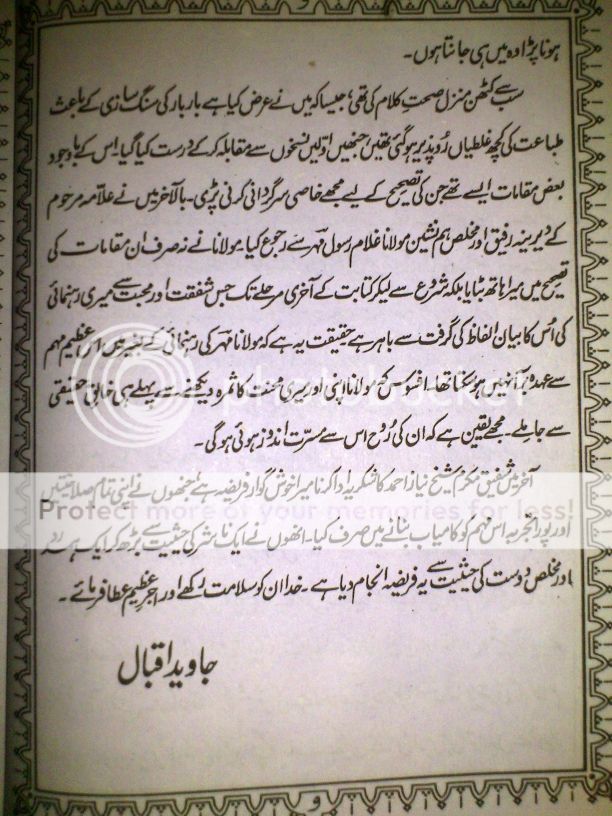 ہونا پڑا وہ میں ہی جانتا ہوں۔
سب سے کٹھن منزل صحتِ کلام کی تھی، جیسا کہ میں نے عرض کیا ہے بار بار کی سنگ سازی کے باعث
طباعت کی کچھ غلطیاں رُوپذیر ہو گئی تھیں جنھیں اوّلیں نسخوں سے مقابلہ کر کے درست کیا گیا۔ اس کے باوجود
بعض مقامات ایسے تھے جن کی تصحیح کے لیے مجھے خاصی سرگردانی کرنی پڑی۔ بالآخر میں نے علّامہ مرحوم
کے دیرینہ رفیق اور مخلص ہم نشین مولانا غلام رسول مہر سے رجوع کیا۔ مولانا نے نہ صرف ان مقامات کی
تصحیح میں میرا ہاتھ بٹایا بلکہ شروع سے لیکر کتابت کے آخری مرحلے تک جس شفقت اور محبت سے میری رہنمائی
کی اُس کا بیان الفاظ کی گرفت سے باہر ہے حقیقت یہ ہے کہ مولانا مہر کی رہنمائی کے بغیر میں اس عظیم مہم
سے عہدہ برآ نہیں ہو سکتا تھا۔ افسوس کہ مولانا اپنی اور میری محنت کا ثمرہ دیکھنے سے پہلے ہی خالقِ حقیقی
سے جا ملے۔ مجھے یقین ہے کہ ان کی رُوح اس سے مسرت اندوز ہوئی ہو گی۔
آخر میں شفیق مکرم شیخ نیاز احمد کا شکریہ ادا کرنا میرا خوش گوار فریضہ ہے جنھوں نے اپنی تمام صلاحیتیں
Protect more of your memories for less!
اور پورا تجربہ اس مہم کو کامیاب بنانے میں صرف کیا۔ انھوں نے ایک ناشر کی حیثیت سے بڑھ کر ایک ہمدرد
اور مخلص دوست کی حیثیت سے یہ فریضہ انجام دیا ہے۔ خدا ان کو سلامت رکھے اور اجرِ عظیم عطا فرمائے۔
جاوید اقبال
و